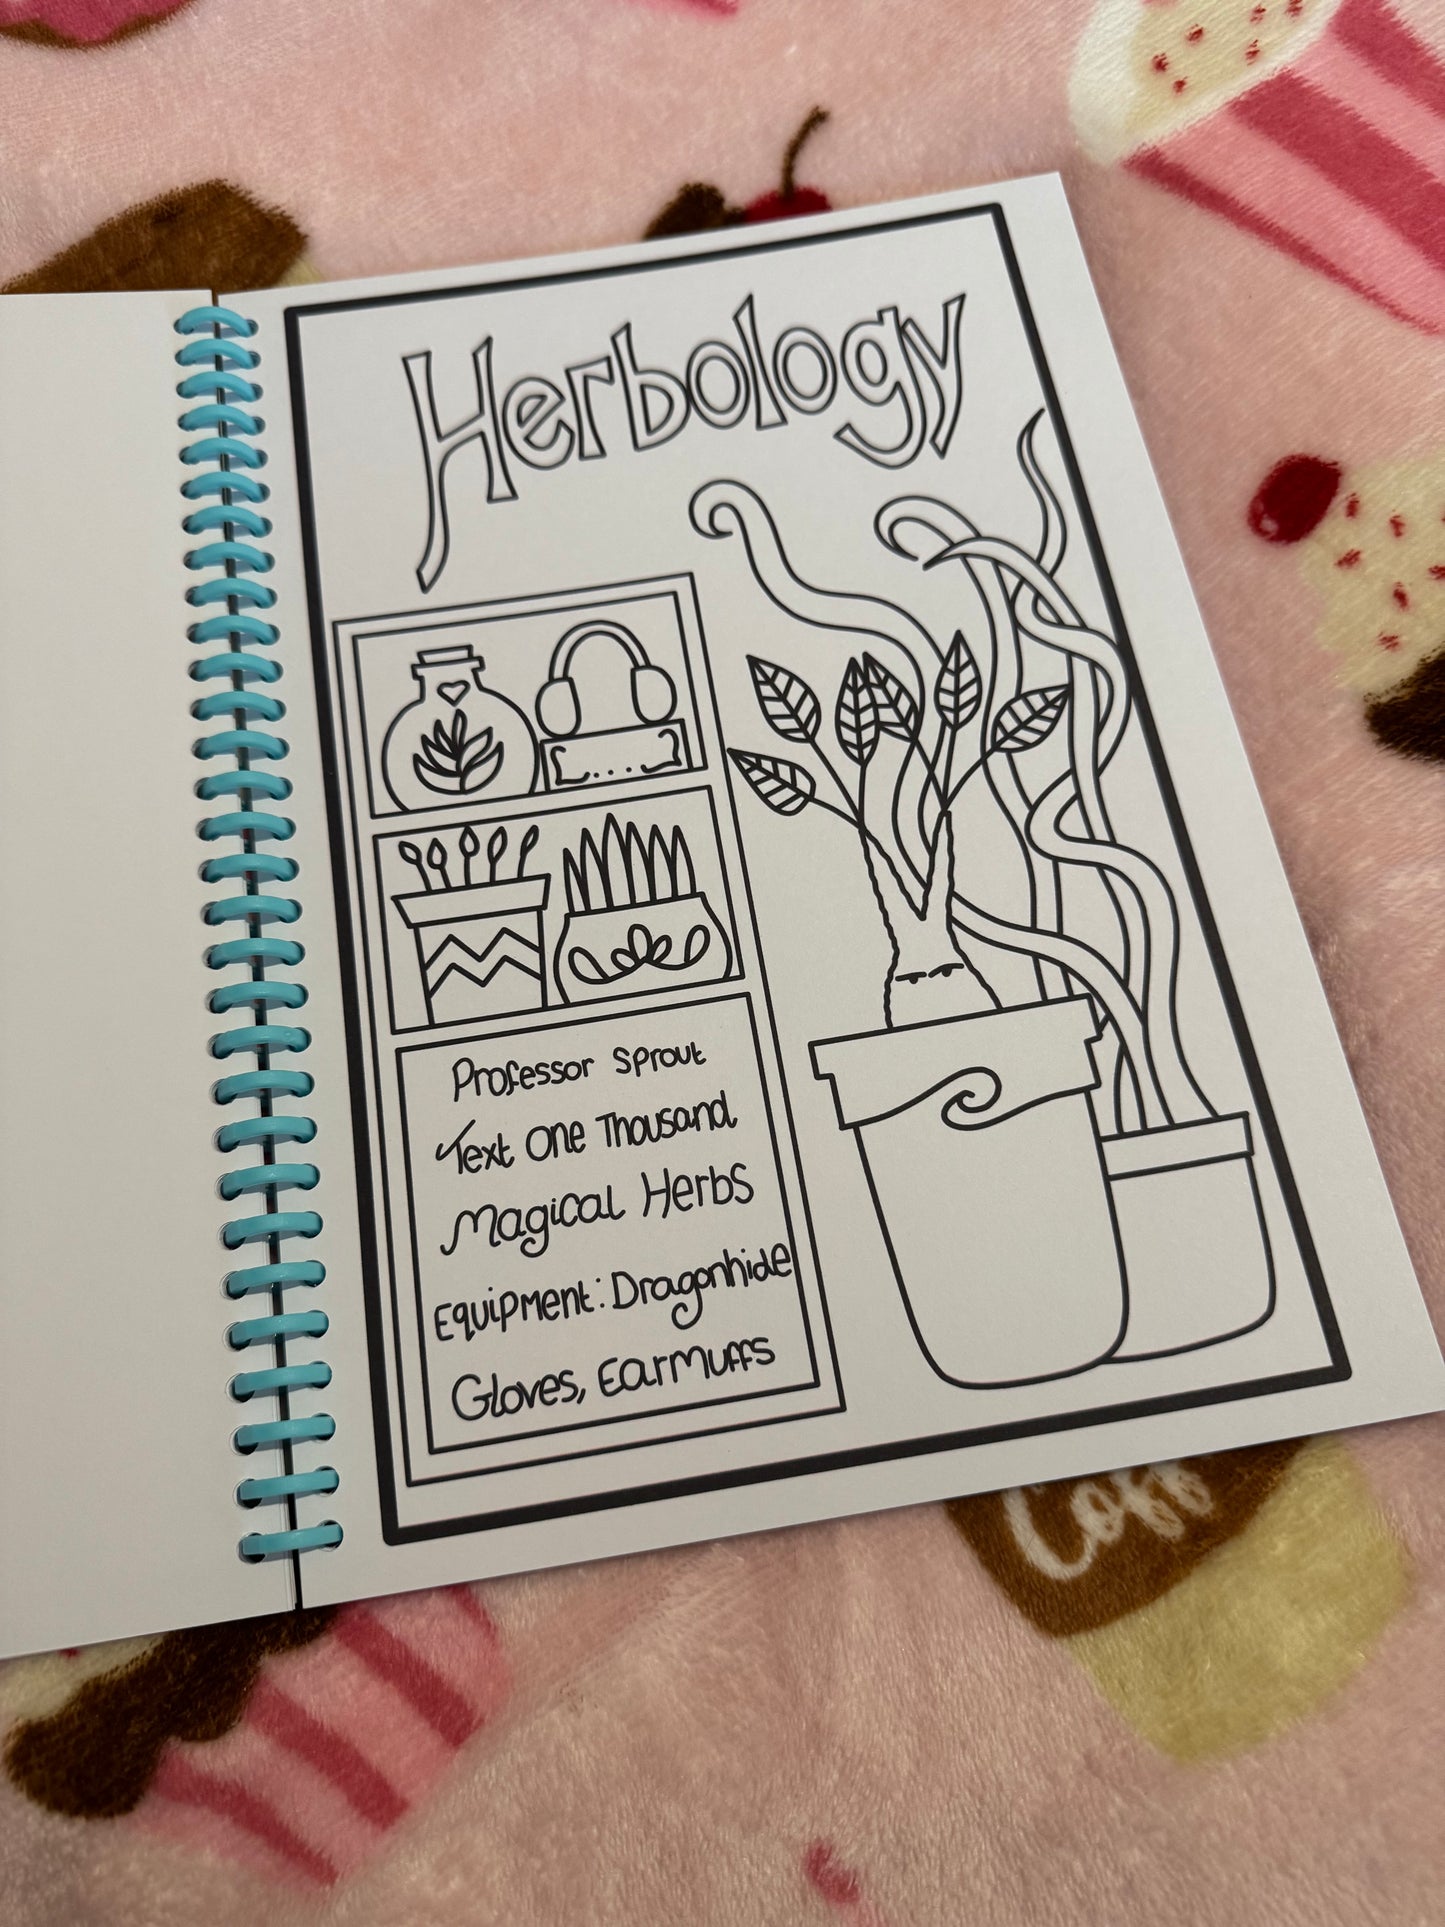 Herbology
Professor Sprout
Text One Thousand
Magical Herbs
Equipment: Dragonhide
Gloves, Earmuffs